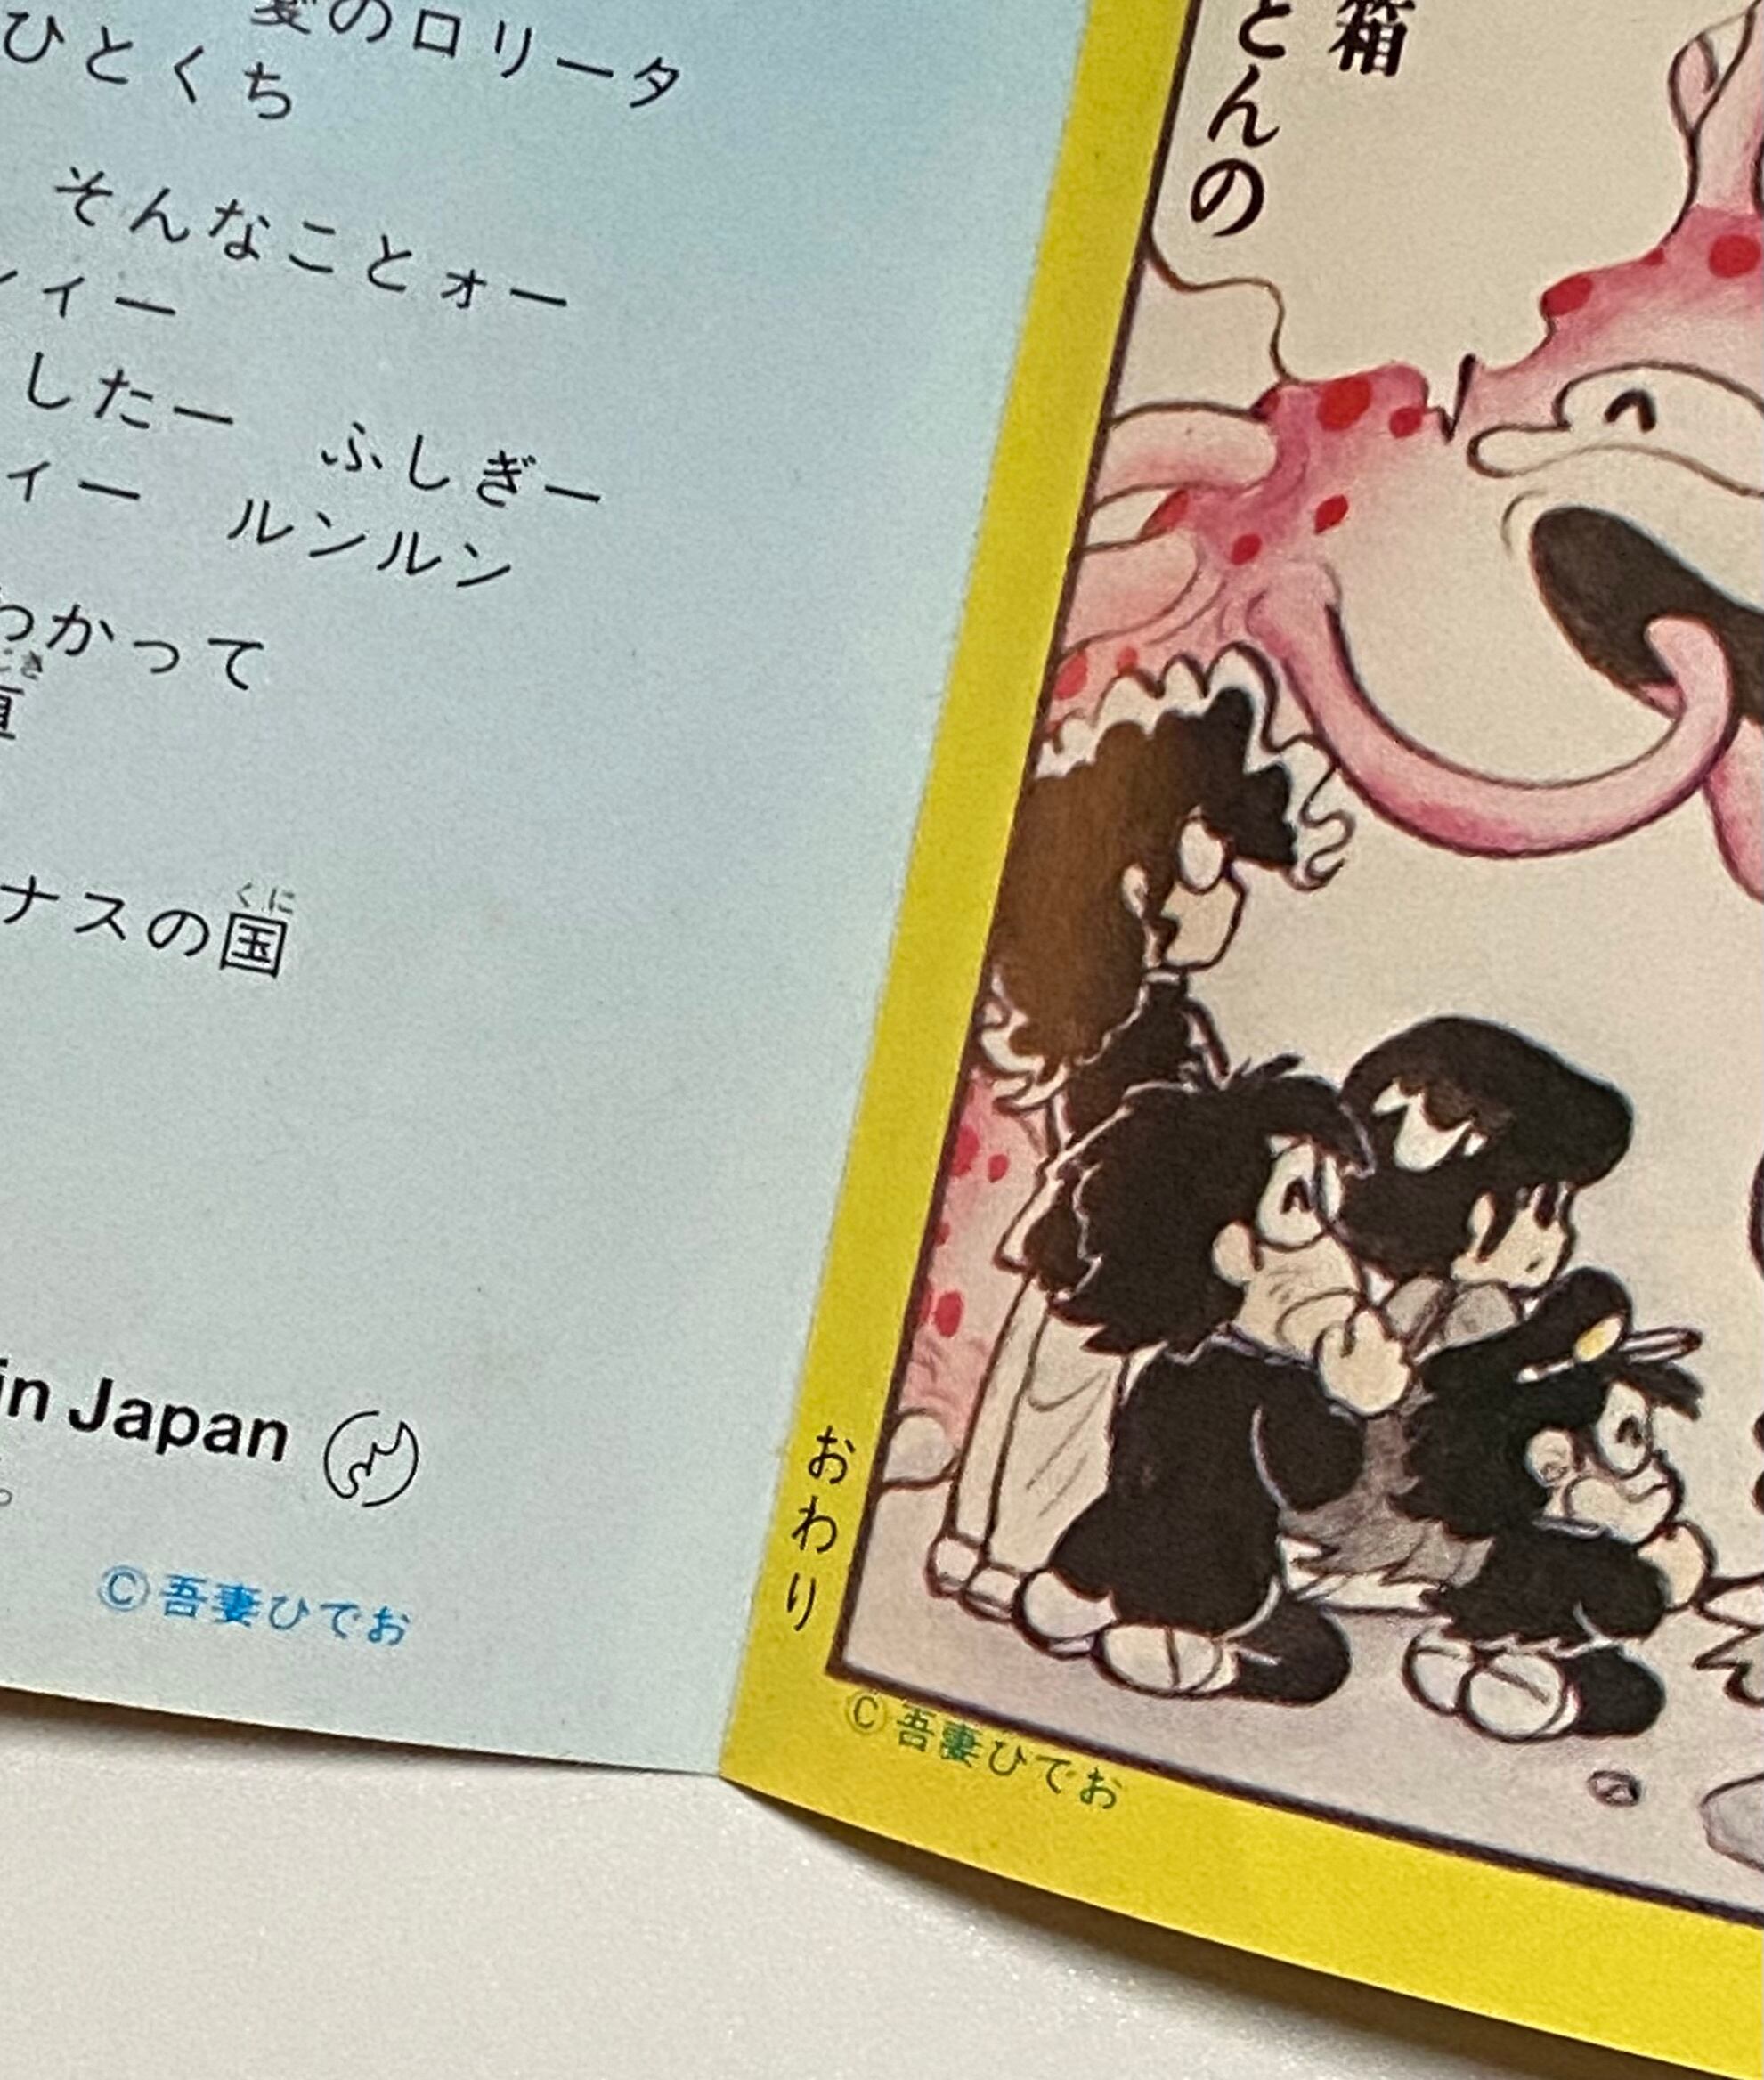 愛のロリータ
ひとくち
そんなことォー
ィー
したー　ふしぎー
ィー　ルンルン
わかって
ナスの国
くに
in Japan
©吾妻ひでお
箱
とんの
おわり
©吾妻ひでお